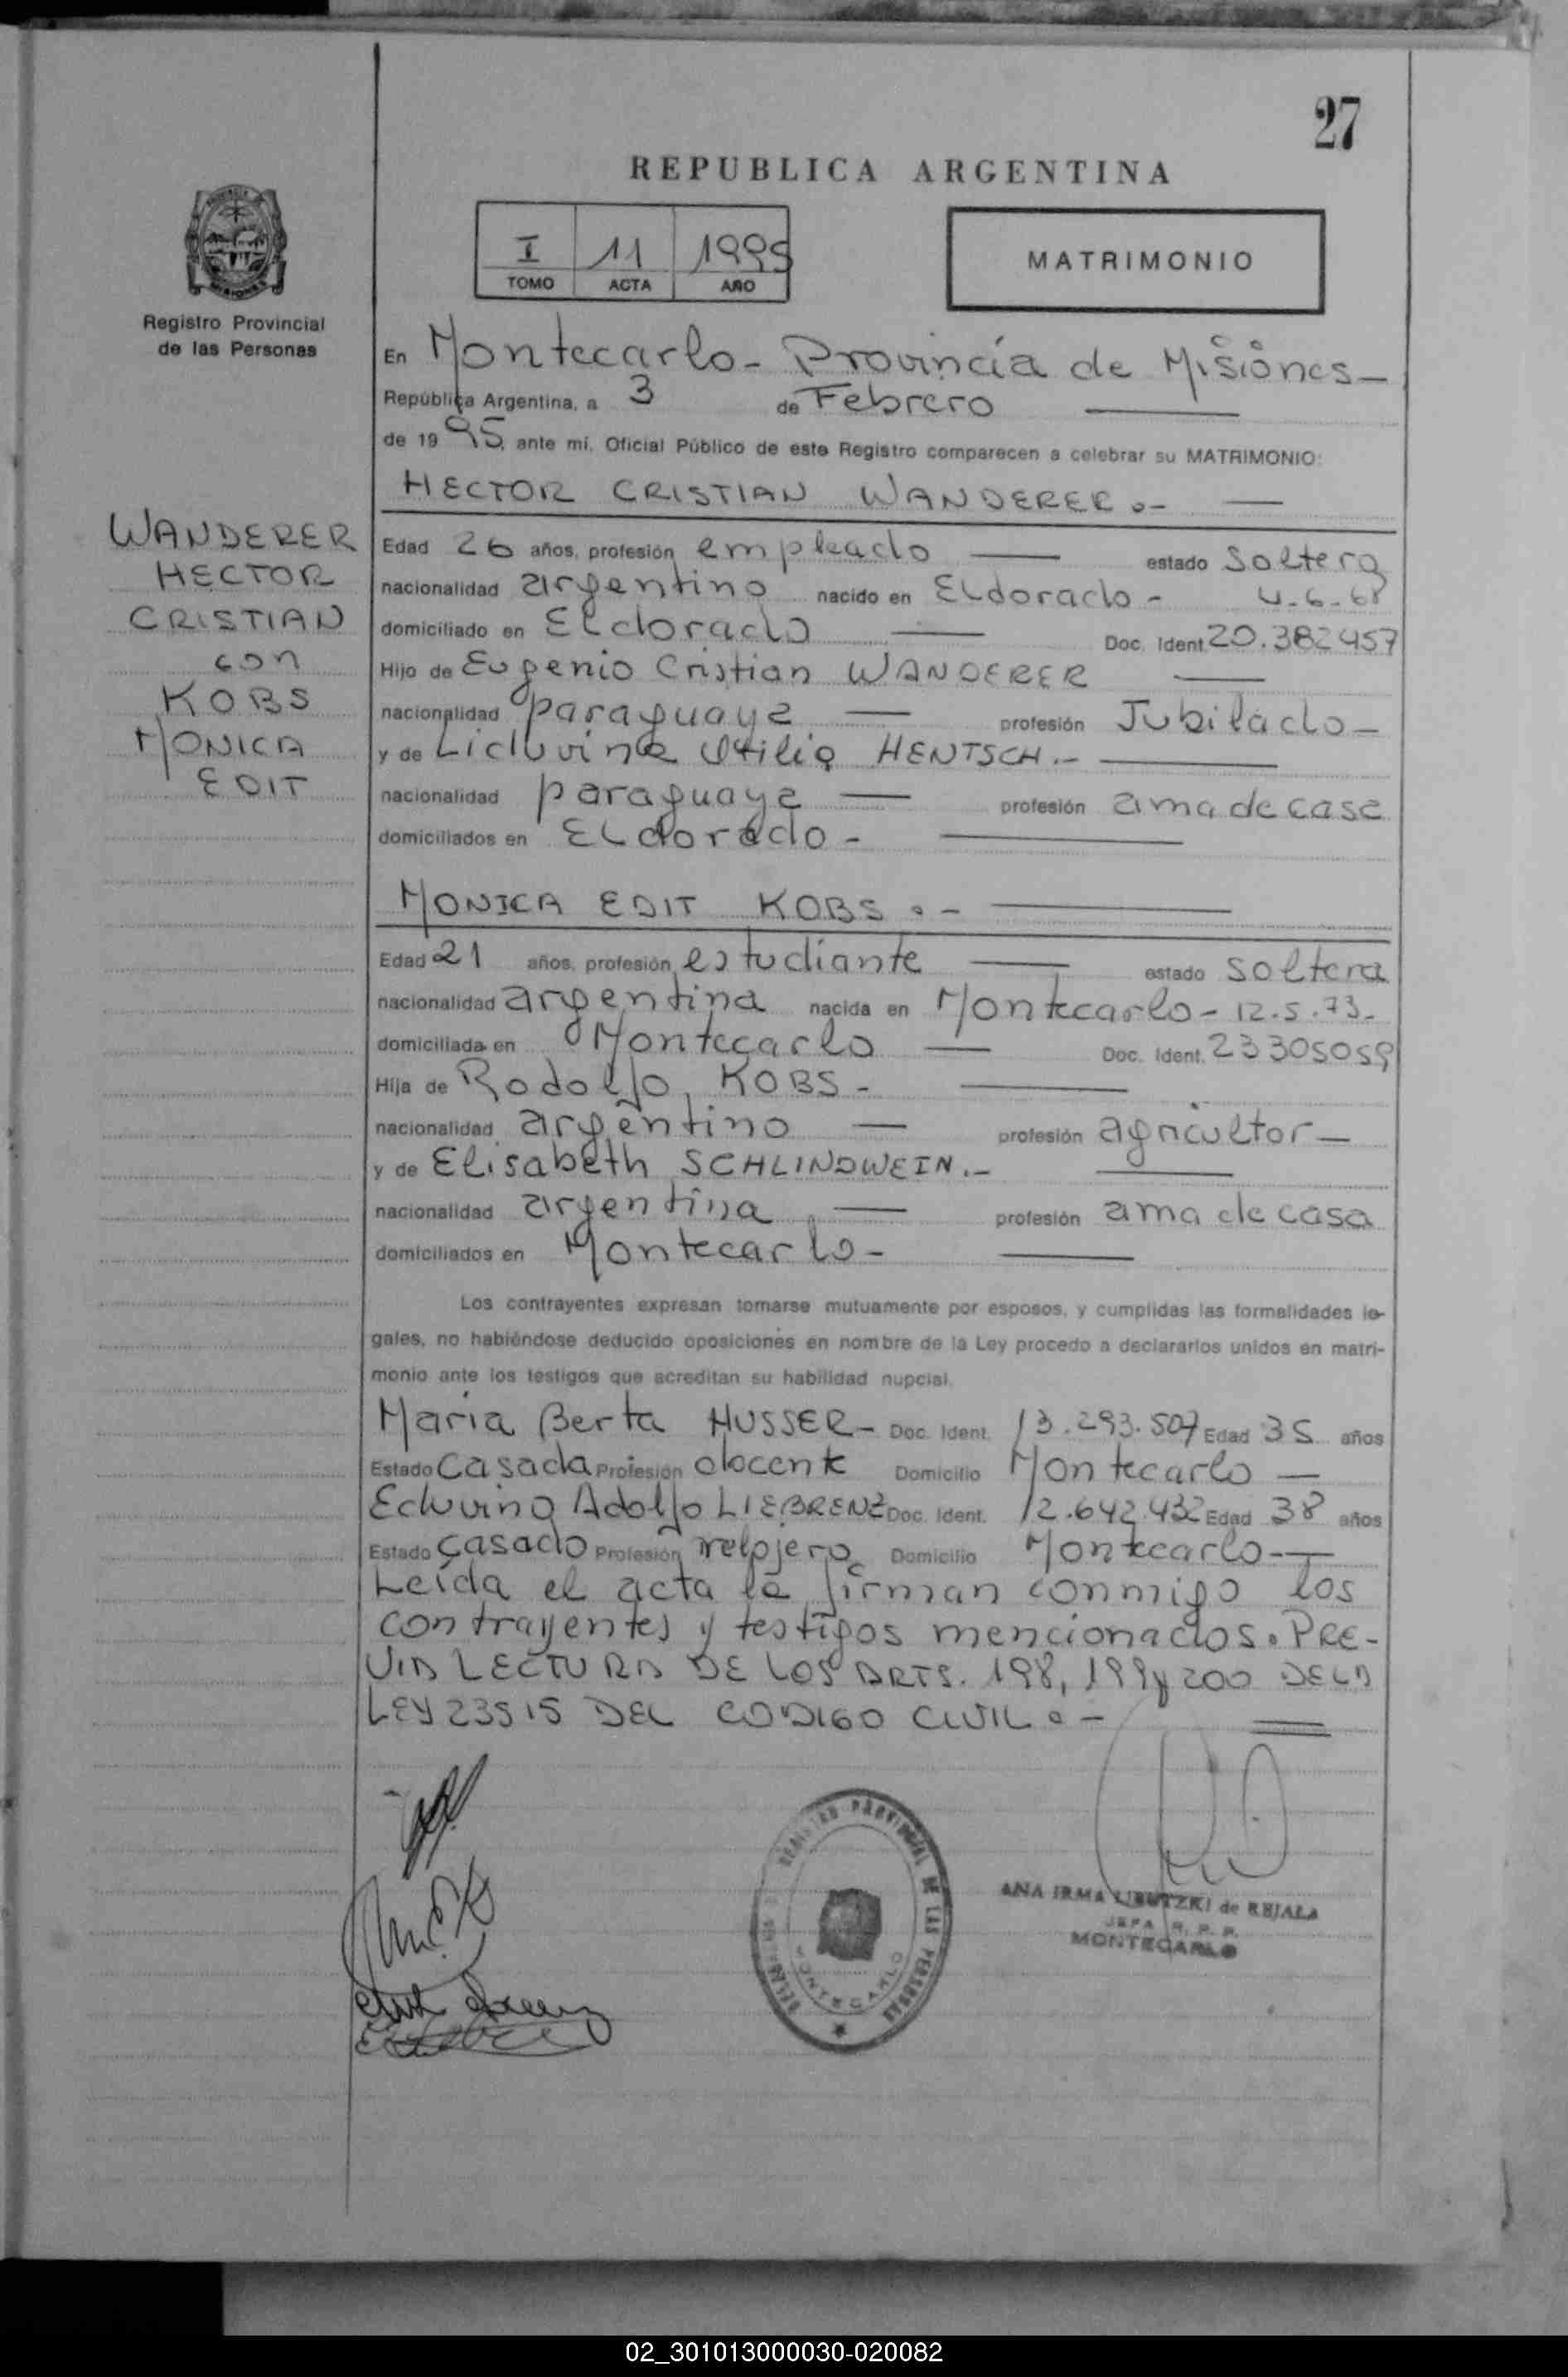 27
REPUBLICA ARGENTINA
I 11 1995
TOMO ACTA AÑO
MATRIMONIO
Registro Provincial
de las Personas
En Montecarlo - Provincia de Misiones -
República Argentina, a 3 de Febrero
de 19 95, ante mí, Oficial Público de este Registro comparecen a celebrar su MATRIMONIO:
HECTOR CRISTIAN WANDERER.-
WANDERER
HECTOR
CRISTIAN
con
KOBS
MONICA
EDIT
Edad 26 años, profesión empleado estado Soltero
nacionalidad argentino nacido en Eldorado - 4-6-68
domiciliado en Eldorado Doc. Ident. 20.382457
Hijo de Eugenio Cristian WANDERER
nacionalidad paraguaya profesión Jubilado -
y de Liduvina Otilia HENTSCH.-
nacionalidad paraguaya profesión ama de casa
domiciliados en Eldorado -
MONICA EDIT KOBS.-
Edad 21 años, profesión estudiante estado soltera
nacionalidad argentina nacida en Montecarlo - 12.5.73.
domiciliada en Montecarlo Doc. Ident. 23305059
Hija de Rodolfo KOBS -
nacionalidad argentino profesión agricultor -
y de Elisabeth SCHLINDWEIN.-
nacionalidad argentina profesión ama de casa
domiciliados en Montecarlo -
Los contrayentes expresan tomarse mutuamente por esposos, y cumplidas las formalidades le-
gales, no habiéndose deducido oposiciones en nombre de la Ley procedo a declararlos unidos en matri-
monio ante los testigos que acreditan su habilidad nupcial.
Maria Berta HUSSER - Doc. Ident. 13.293.507 Edad 35 años
Estado Casada Profesión docente Domicilio Montecarlo -
Eduvino Adolfo LIEBRENZ Doc. Ident. 12.642.432 Edad 38 años
Estado Casado Profesión relojero Domicilio Montecarlo -
Leída el acta la firman conmigo los
contrayentes y testigos mencionados. PRE-
VIA LECTURA DE LOS ARTS. 198, 199 y 200 DE LA
LEY 23515 DEL CODIGO CIVIL.-
REGISTRO PROVINCIAL DE LAS PERSONAS
MONTECARLO
ANA IRMA de REJALA
JEFA R. P. P.
MONTECARLO
02_301013000030-020082